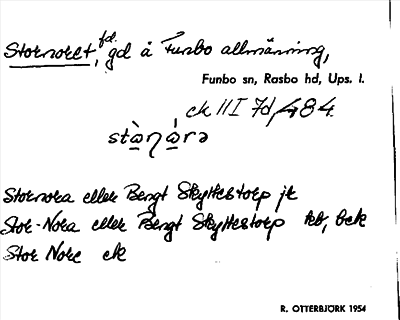 Stornoret, fd. gd å Funbo allmänning,
Funbo sn, Rasbo hd, Ups. l.
ek III 7d, 484.
stò̱ŋó̱rə
Stornora eller Bengt Skyttestorp jk
Stor-Nora eller Bengt Skyttestorp hb, bek
Stor Nore ek
R. OTTERBJÖRK 1954